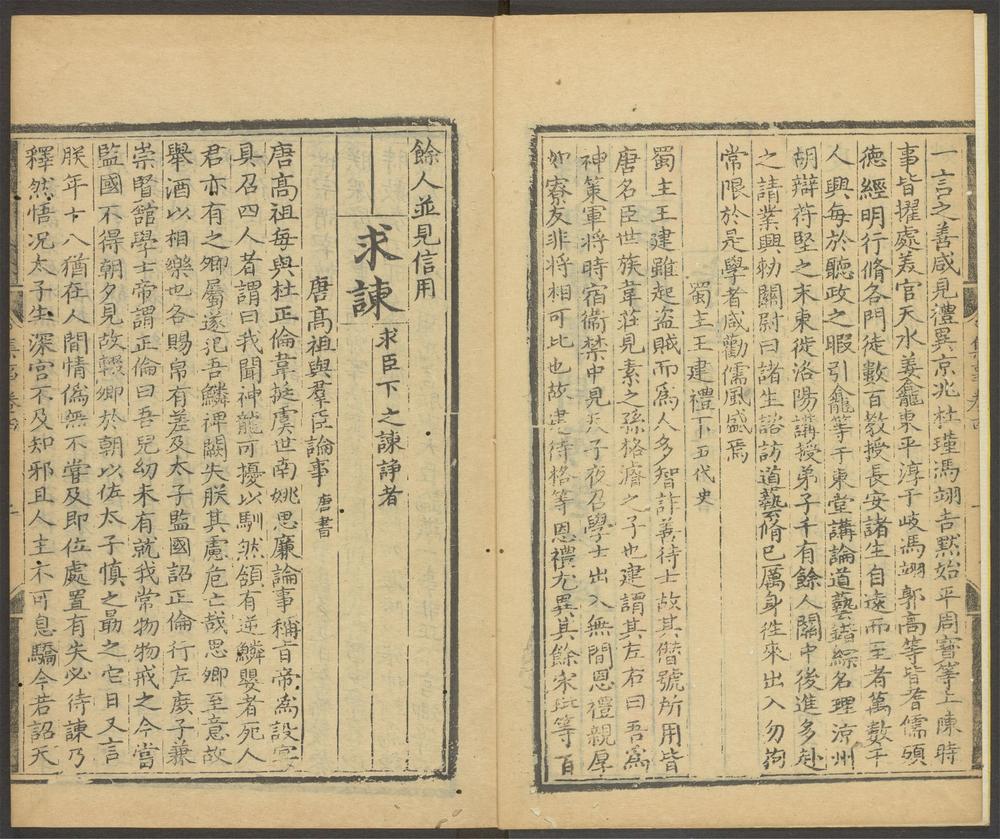 一言之善咸見禮異京兆杜瑾馮翊吉黙始平周寳等上陳時
事皆擢處美官天水姜龕東平淳于岐馮翊郭高等皆耆儒碩
德經明行脩各門徒數百教授長安諸生自遠而至者萬數千
人興每於聽政之暇引龕等于東堂講論道藝錯綜名理涼州
胡辯苻堅之末東徙洛陽講授弟子千有餘人關中後進多赴
之請業興勑關尉曰諸生諮訪道藝脩已厲身徃來出入勿拘
常限於是學者咸勸儒風盛焉
蜀主王建禮下五代史
蜀主王建雖起盗賊而爲人多智詐善待士故其僭號所用皆
唐名臣世族韋莊見素之孫格濟之子也建謂其左右曰吾爲
神策軍将時宿衞禁中見天子夜召學士出入無間恩禮親厚
如寮友非将相可比也故建待格等恩禮尤異其餘宋玭等百
餘人並見信用
求諫求臣下之諫諍者
唐髙祖與羣臣論事唐書
唐髙祖每與杜正倫韋挺虞世南姚思廉論事稱旨帝爲設宴
具召四人者謂曰我聞神龍可擾以馴然頷有逆鱗嬰者死人
君亦有之卿屬遂犯吾鱗禆闕失朕其慮危亡哉思卿至意故
舉酒以相樂也各賜帛有差及太子監國詔正倫行左庶子兼
崇賢館學士帝謂正倫曰吾兒幼未有就我常物物戒之今當
監國不得朝夕見故輟卿於朝以佐太子慎之勗之它日又言
朕年十八猶在人間情僞無不嘗及即位處置有失必待諫乃
釋然悟况太子生深宮不及知邪且人主不可息驕今若詔天